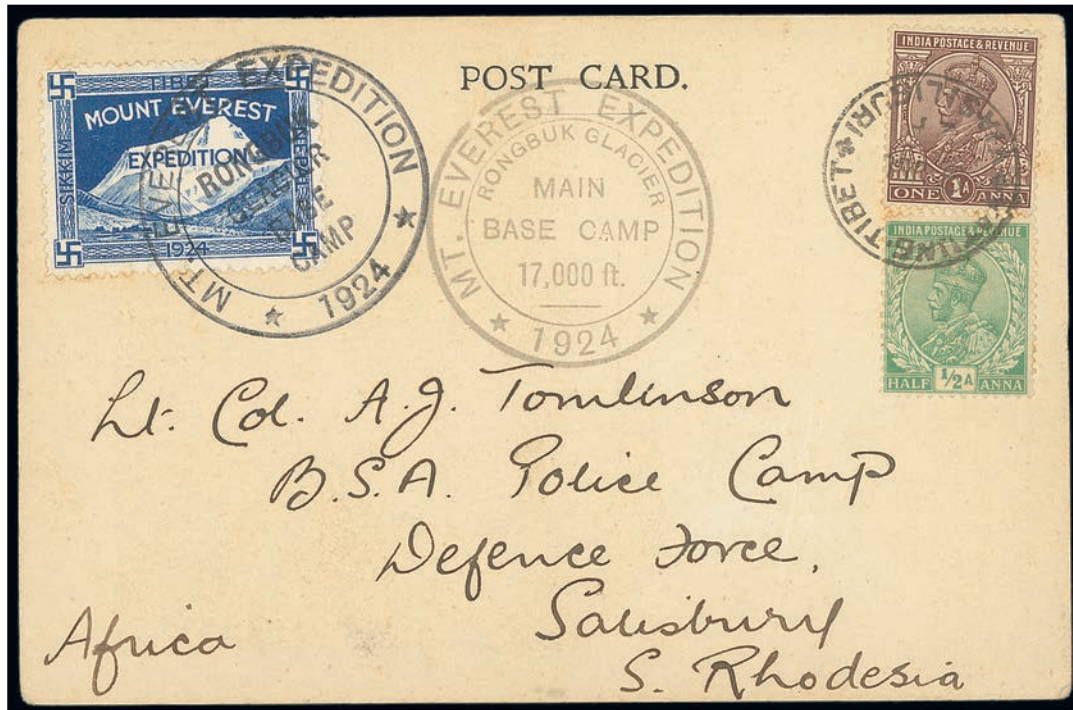 POST CARD.
TIBET
MOUNT EVEREST
EXPEDITION
SIKKIM
NEPAL
1924
MT. EVEREST EXPEDITION
RONGBUK
GLACIER
BASE
CAMP
★ 1924 ★
MT. EVEREST EXPEDITION
RONGBUK GLACIER
MAIN
BASE CAMP
17,000 ft.
★ 1924 ★
INDIA POSTAGE & REVENUE
ONE 1A ANNA
TIBET
SILIGURI
INDIA POSTAGE & REVENUE
HALF ½A ANNA
Lt. Col. A.J. Tomlinson
B.S.A. Police Camp
Defence Force,
Salisbury
S. Rhodesia
Africa